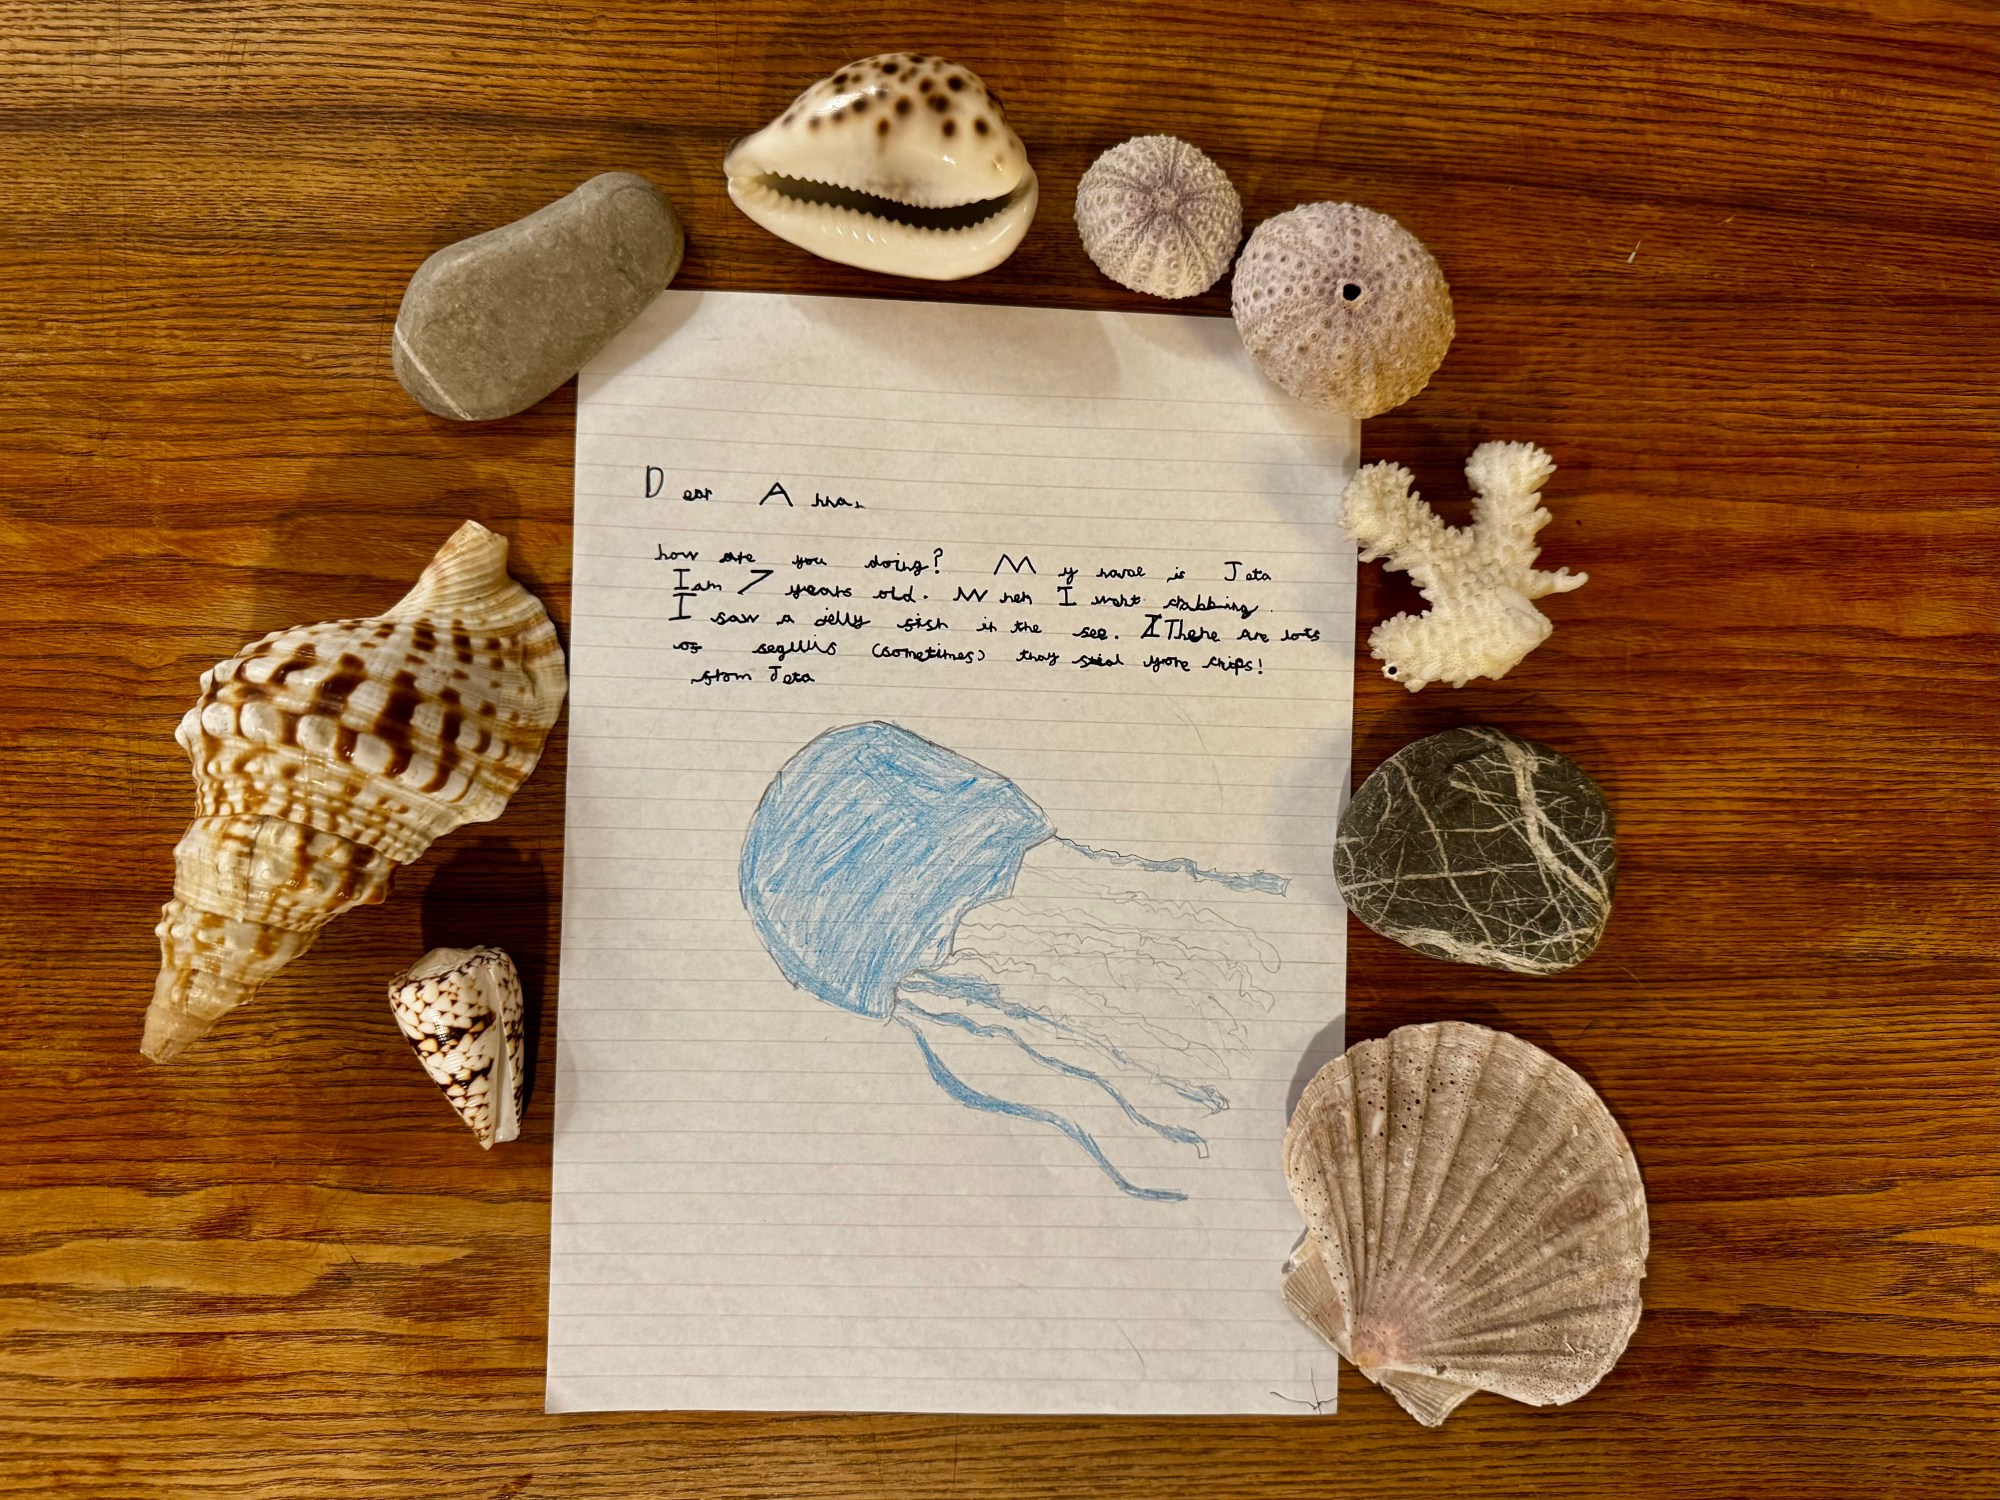 Dear Anna,
how are you doing? My name is Jeta
I am 7 years old. When I went crabbing.
I saw a jelly fish in the see. There are lots
of segulls (sometimes) thay steal yore chips!
from Jeta